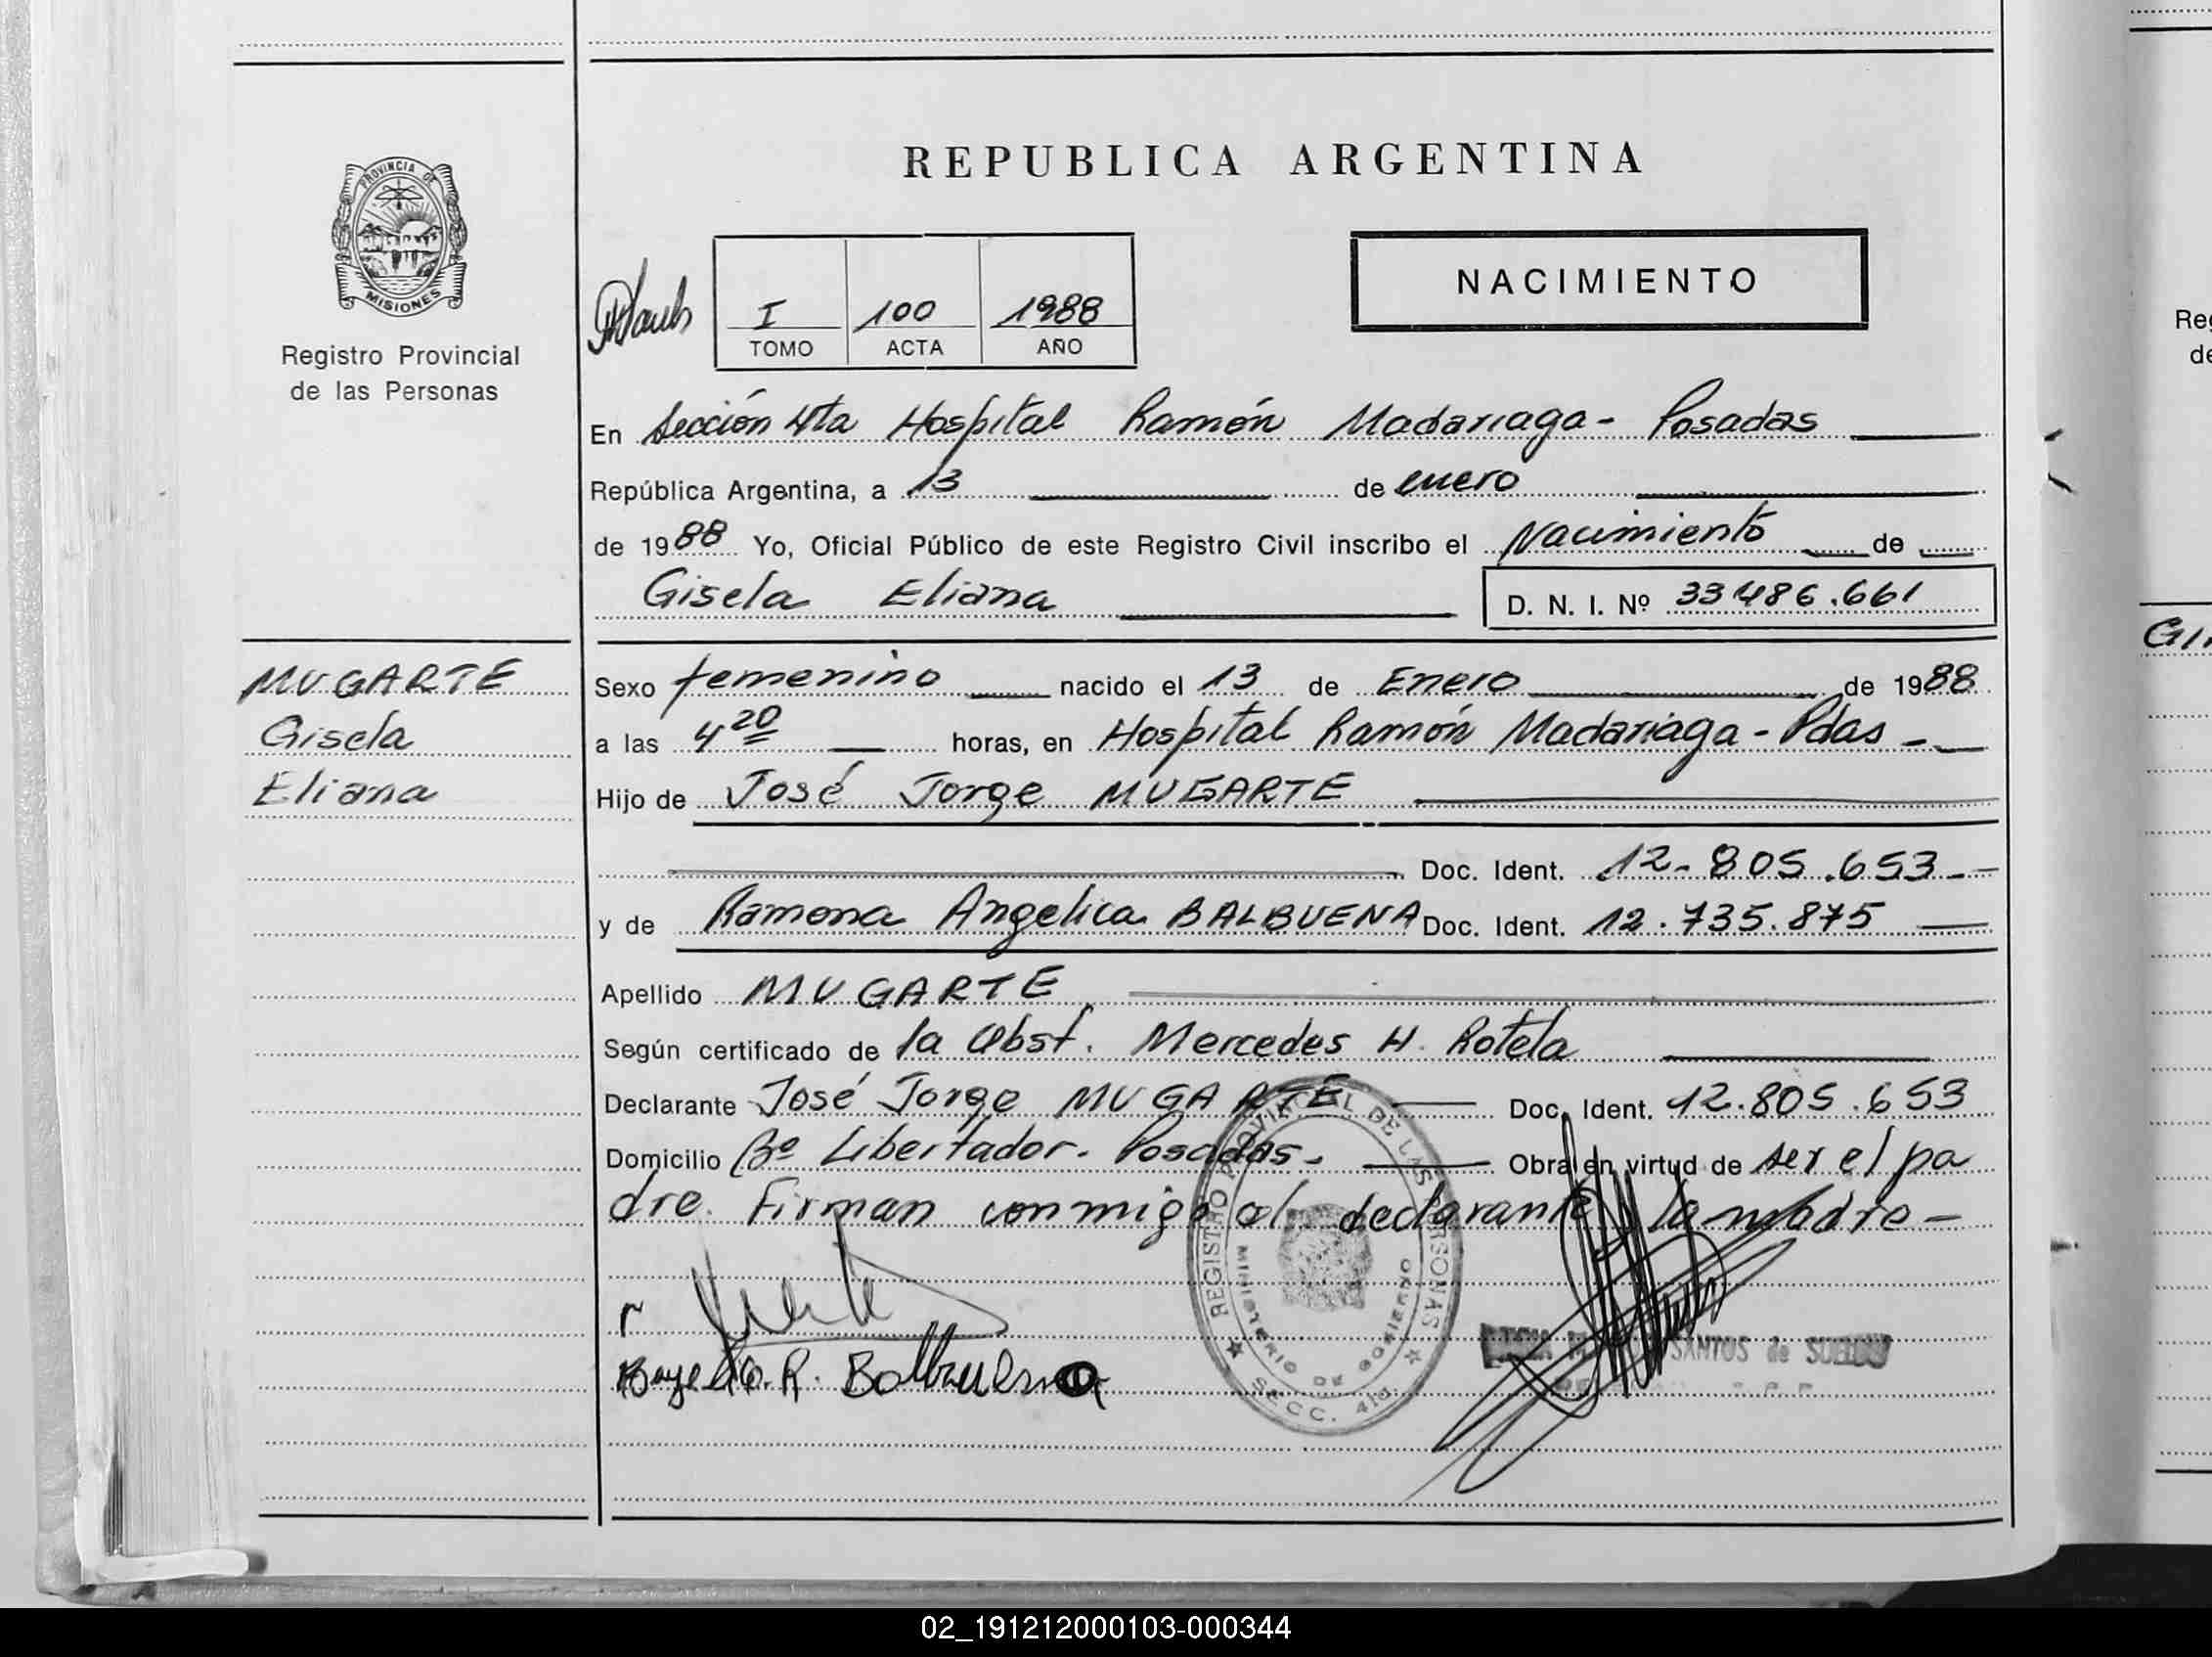 REPUBLICA ARGENTINA
PROVINCIA DE
MISIONES
Registro Provincial
de las Personas
NACIMIENTO
I 100 1988
TOMO ACTA AÑO
En Sección 4ta Hospital Ramón Madariaga - Posadas
República Argentina, a 13 de enero
de 1988 Yo, Oficial Público de este Registro Civil inscribo el Nacimiento de
Gisela Eliana D. N. I. Nº 33486.661
MUGARTE
Gisela
Eliana
Sexo femenino nacido el 13 de Enero de 1988
a las 4 20 horas, en Hospital Ramón Madariaga - Pdas -
Hijo de José Jorge MUGARTE
Doc. Ident. 12-805.653-
y de Ramona Angelica BALBUENA Doc. Ident. 12.735.875
Apellido MUGARTE
Según certificado de la Obst. Mercedes H. Rotela
Declarante José Jorge MUGARTE Doc. Ident. 12.805.653
Domicilio Bº Libertador. Posadas. Obra en virtud de ser el pa
dre. Firman conmigo el declarante y la madre -
REGISTRO PROVINCIAL DE LAS PERSONAS
MINISTERIO DE GOBIERNO
SECC. 4ta.
R. Balbuena
SANTOS de SUELDO
Reg
de
GI
02_191212000103-000344